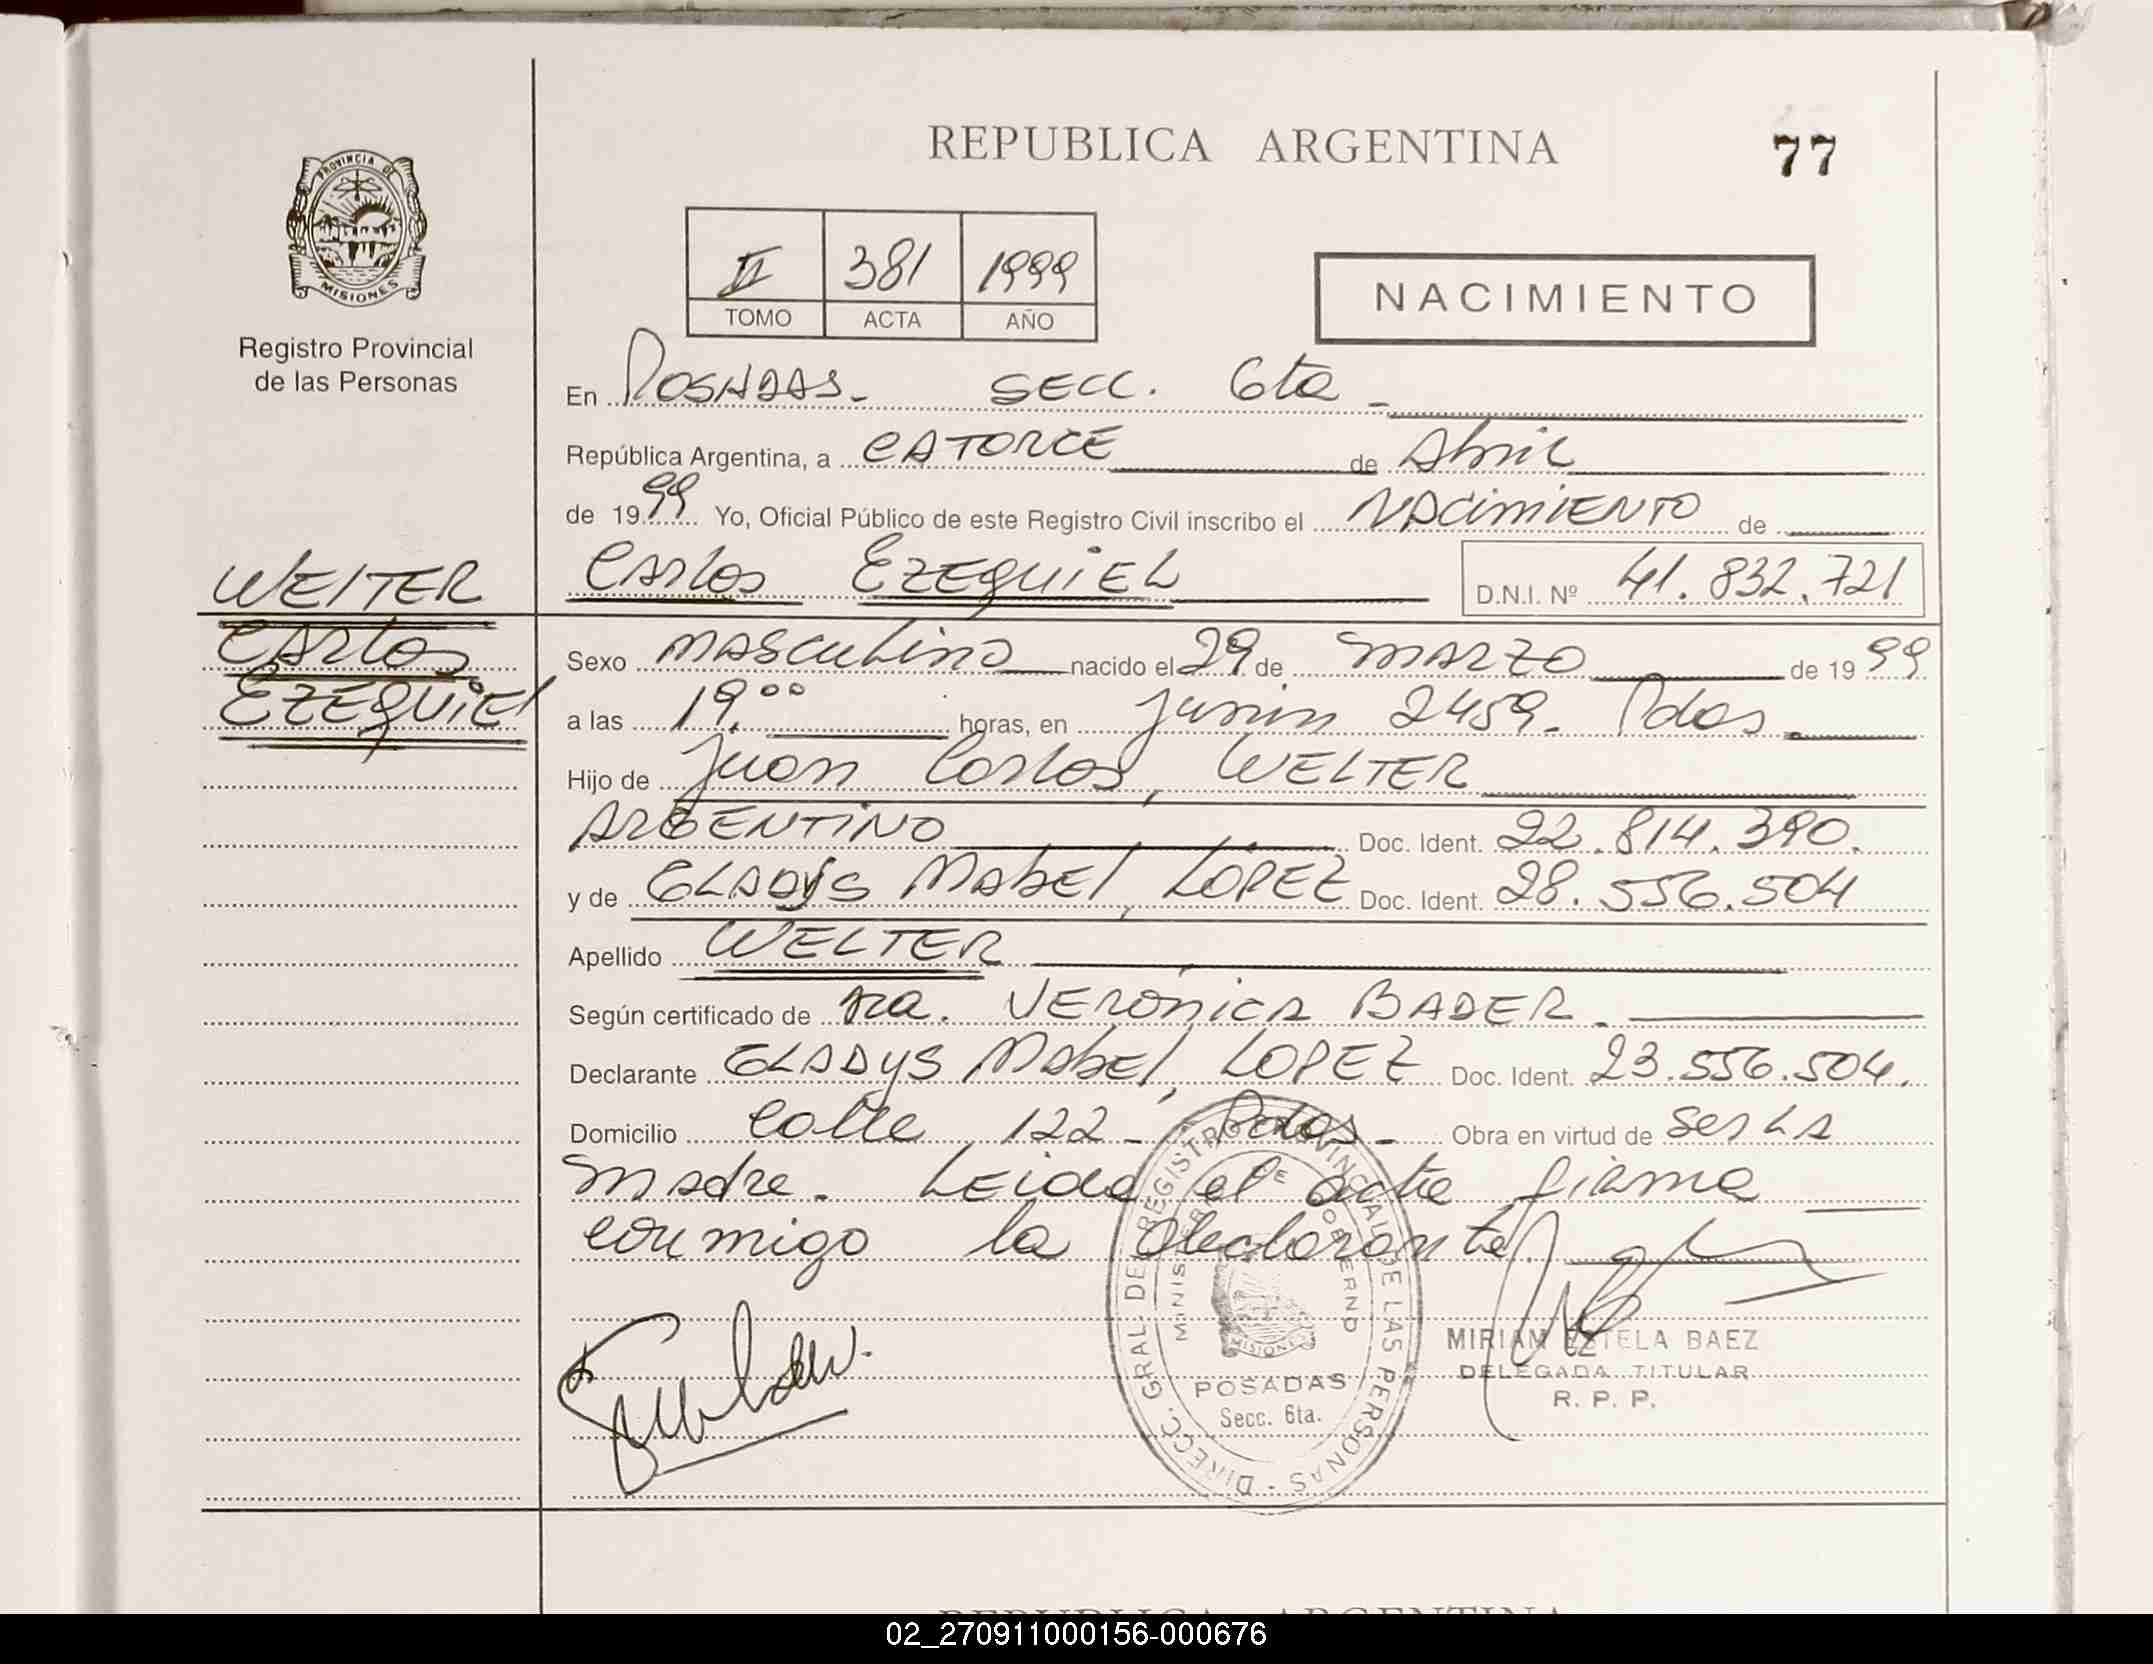 REPUBLICA ARGENTINA
77
PROVINCIA DE
MISIONES
Registro Provincial
de las Personas
II 381 1999
TOMO ACTA AÑO
NACIMIENTO
En POSADAS. SECC. 6ta -
República Argentina, a CATORCE de Abril
de 1999 Yo, Oficial Público de este Registro Civil inscribo el NACIMIENTO de
WELTER
Carlos
EZEQUIEL
Carlos EZEQUIEL D.N.I. Nº 41.832.721
Sexo MASCULINO nacido el 29 de MARZO de 1999
a las 19.00 horas, en Junin 2459. Pdas.
Hijo de Juan Carlos, WELTER
ARGENTINO Doc. Ident. 22.814.390.
y de GLADYS MABEL, LOPEZ Doc. Ident. 28.556.504
Apellido WELTER
Según certificado de Dra. VERONICA BADER.
Declarante GLADYS MABEL, LOPEZ Doc. Ident. 23.556.504.
Domicilio Calle 122 - Pdas. Obra en virtud de Ser LA
Madre. Leida el acta firma
conmigo la declarante.
DIRECC. GRAL. DEL REGISTRO PROVINCIAL DE LAS PERSONAS
MINISTERIO DE GOBIERNO
MISIONES
POSADAS
Secc. 6ta.
MIRIAM ESTELA BAEZ
DELEGADA TITULAR
R. P. P.
REPUBLICA ARGENTINA
02_270911000156-000676